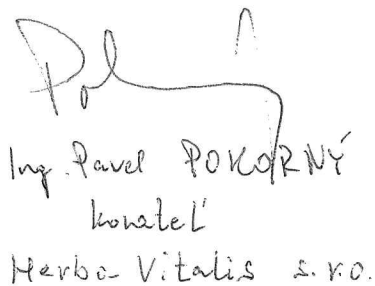 Ing. Pavel POKORNÝ
konateľ
Herba Vitalis s.r.o.